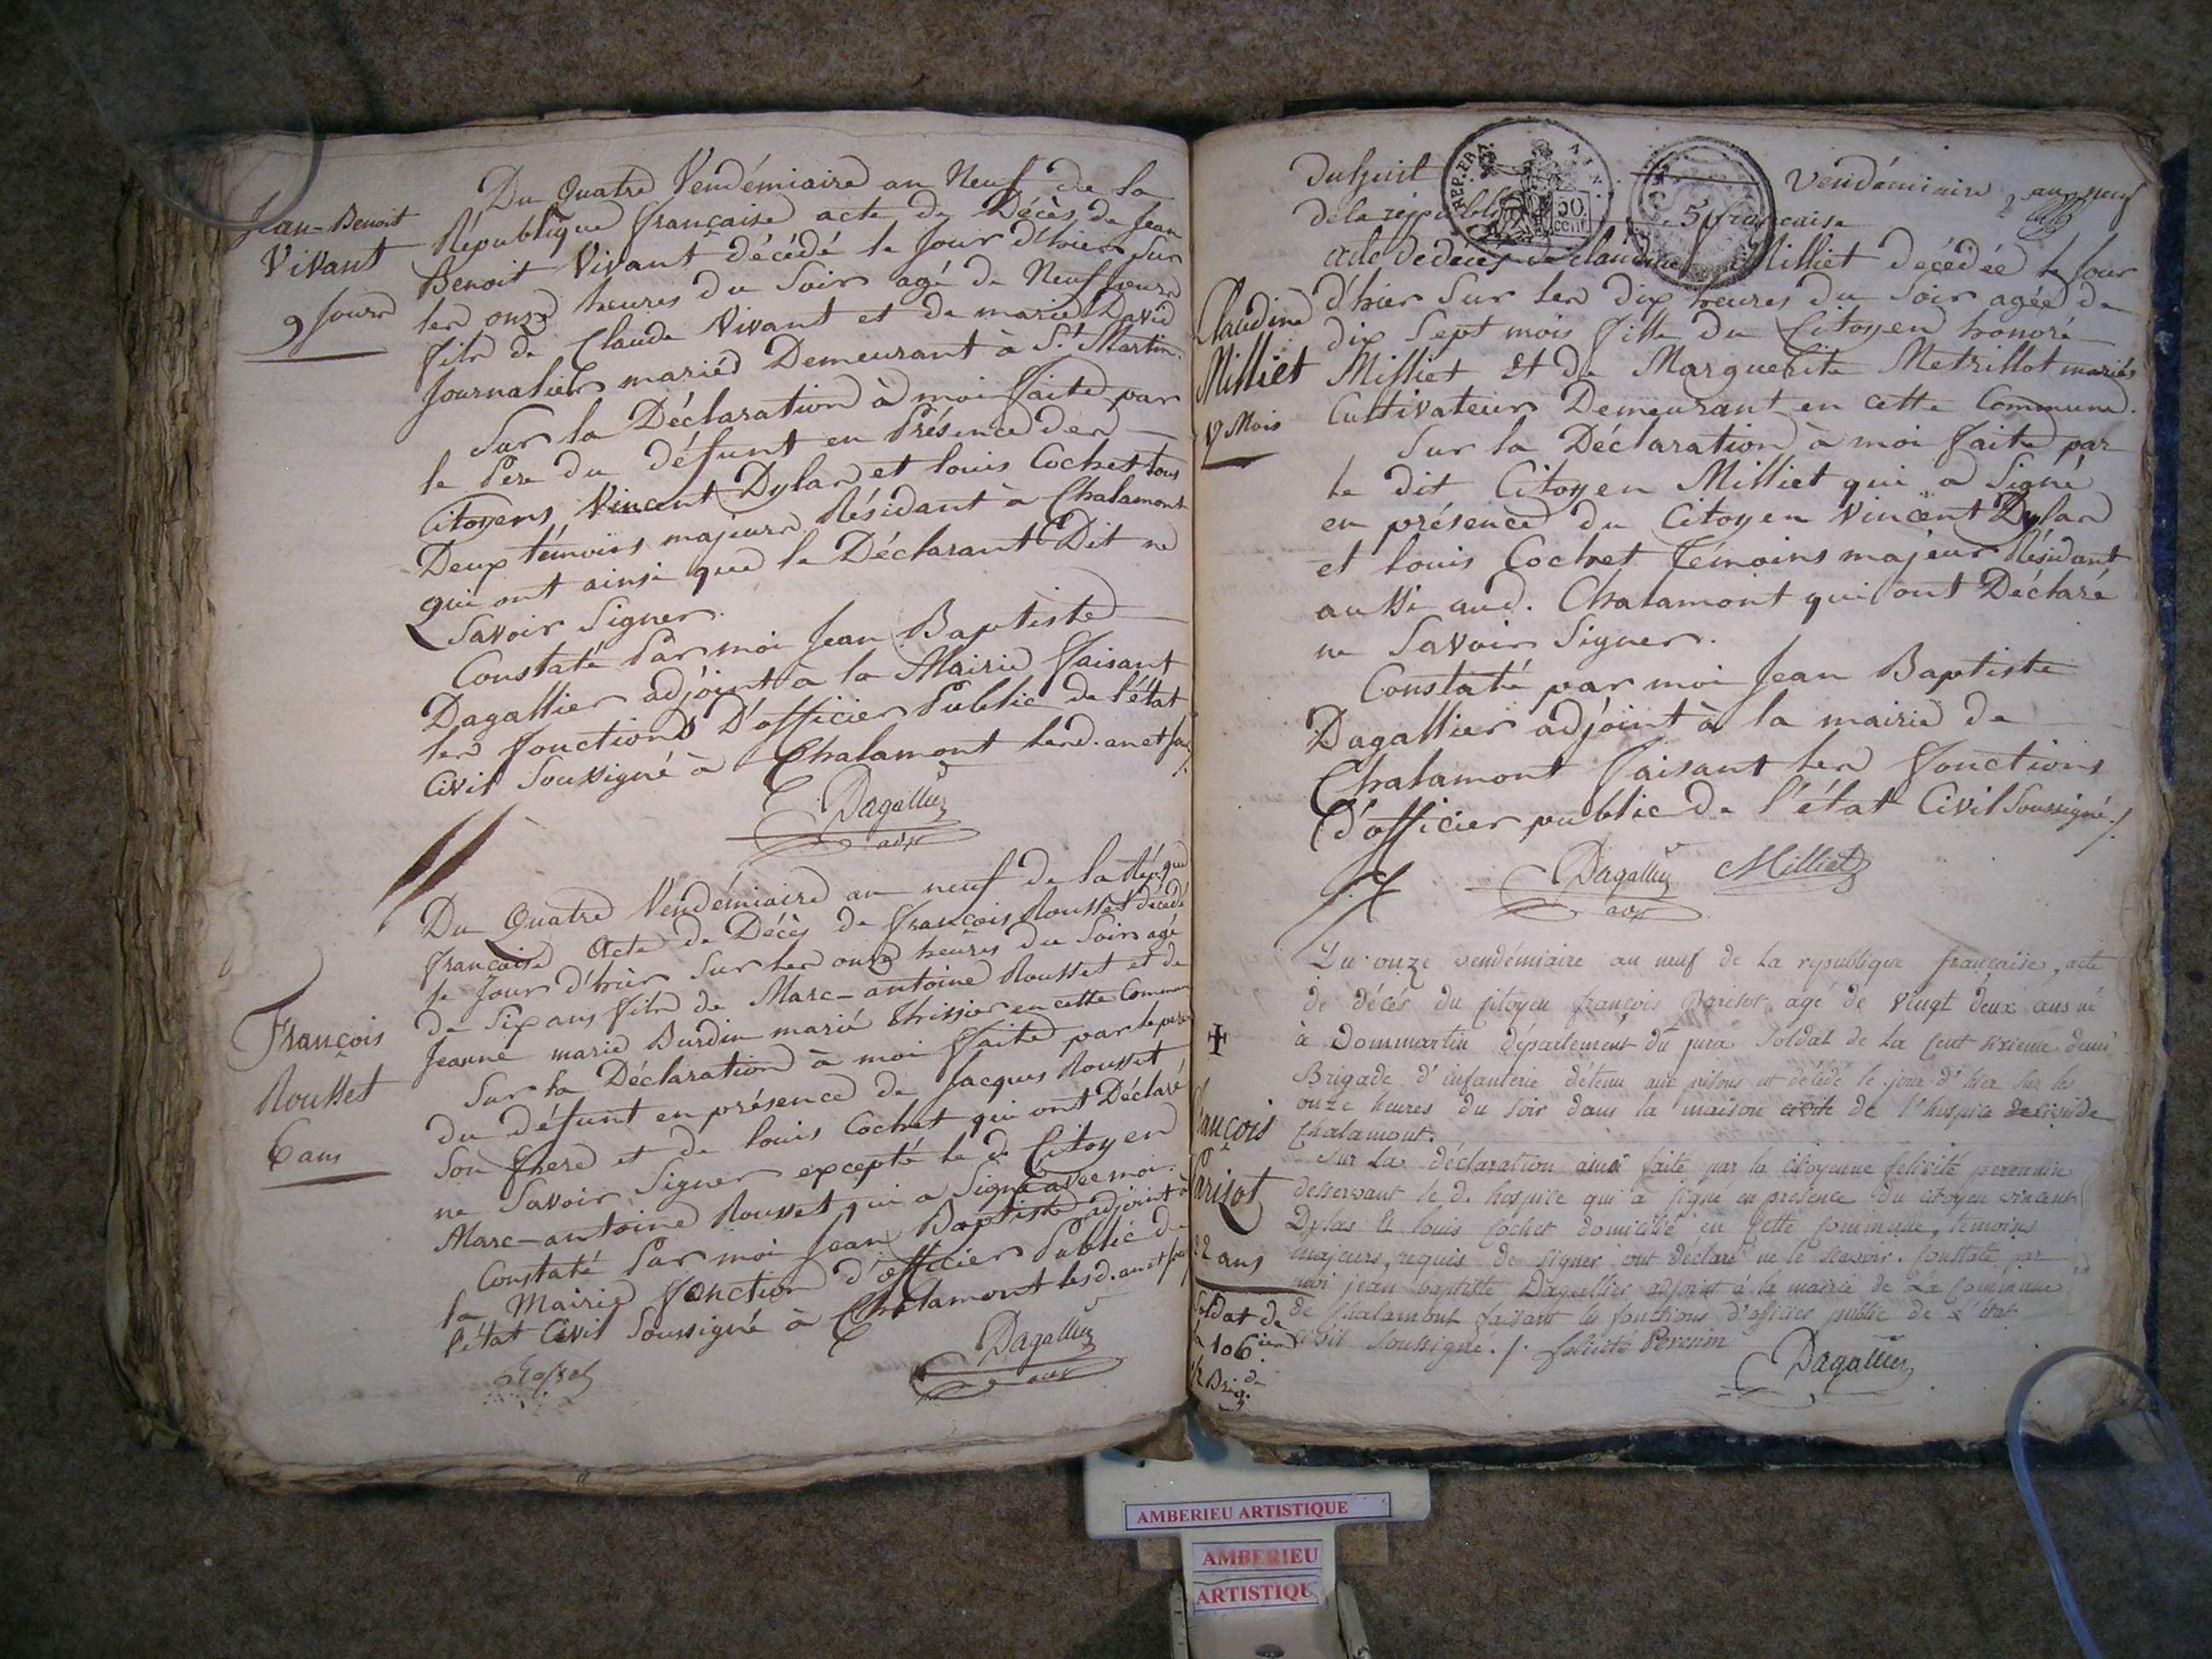 Jean-Benoit
Vivant
9 Jours
Du Quatre Vendémiaire an Neuf de la
République française acte de Décès de Jean
Benoit Vivant décédé le Jour d'hier Sur
les onze heures du Soir agé de Neuf Jours
fils de Claude Vivant et de marie David
Journalier mariés Demeurant à St. Martin.
Sur la Déclaration à moi faite par
le Pere du défunt en Présence des
Citoyens Vincent Dylas et louis Cochet tous
Deux témoins majeurs Résidant à Chalamont
qui ont ainsi que le Déclarant Dit ne
Savoir Signer.
Constaté Par moi Jean Baptiste
Dagallier adjoint à la Mairie faisant
les fonctions D'officier Public de l'état
Civil Soussigné à Chalamont lesd. an et jour
Dagallier
François
Rousset
6 ans
Du Quatre Vendémiaire an neuf de la
française Acte de Décès de françois Rousset décédé
le Jour d'hier Sur les onze heures du Soir agé
de Six ans fils de Marc-antoine Rousset et de
Jeanne marie Burdin marié en cette Commune
Sur la Déclaration à moi faite par le pere
du défunt en présence de Jacques Rousset
Son frere et de louis Cochet qui ont Déclaré
ne Savoir Signer excepté le d. Citoyen
Marc-antoine Rousset qui a Signé avec moi.
Constaté Par moi Jean Baptiste adjoint à
la Mairie fonction d'officier Public de
l'état Civil Soussigné à Chalamont lesd. an et jour
Dagallier
REP. FRA.
50
cent
5
Du huit Vendémiaire an neuf
de la république française
acte de décès de claudine Milliet décédée le Jour
d'hier Sur les dix heures du Soir agée de
dix Sept mois fille du Citoyen honoré
Milliet et de Marguerite Metrillot mariés
Cultivateurs Demeurant en cette Commune.
Claudine
Milliet
17 Mois
Sur la Déclaration à moi faite par
le dit Citoyen Milliet qui a Signé
en présence du Citoyen Vincent Dylas
et louis Cochet témoins majeurs Résidant
aussi aud. Chalamont qui ont Déclaré
ne Savoir Signer.
Constaté par moi Jean Baptiste
Dagallier adjoint à la mairie de
Chalamont faisant les fonctions
d'officier public de l'état Civil Soussigné./.
Dagallier Milliet
Du onze vendémiaire an neuf de la republique française, acte
de décés du citoyen françois parisot agé de vingt deux ans né
à Dommartin département du jura soldat de la cent sixieme demi
Brigade d'infanterie détenu aux prisons et décédé le jour d'hier sur les
onze heures du soir dans la maison de l'hospice
Chalamont.
françois
Parisot
22 ans
Soldat de
la 106ieme
1/2 Brigde
Sur la déclaration ainsi faite par la citoyenne felicité perrenin
desservant le d. hospice qui a signé en presence du citoyen vincent
Dylas et louis cochet domicilié en cette commune, temoins
majeurs, requis de signer ont déclaré ne le sçavoir. Constaté par
moi jean baptiste Dagallier adjoint à la mairie de la Commune
de Chalamont faisant les fonctions d'officier public de l'état
civil soussigné./. felicité Perrenin
Dagallier
AMBERIEU ARTISTIQUE
AMBERIEU
ARTISTIQU